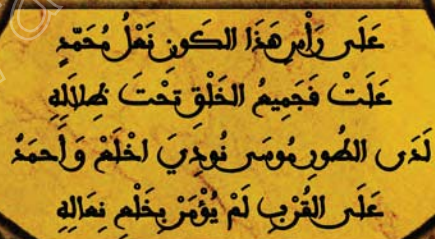 عَلَى رَأْسِ هَذَا الكَونِ نَعْلُ مُحَمَّدٍ
عَلَتْ فَجَمِيعُ الخَلْقِ تَحْتَ ظِلاَلِهِ
لَدَى الطُّورِ مُوسَى نُودِيَ اخْلَعْ وَأَحمَدُ
عَلَى القُرْبِ لَمْ يُؤْمَرْ بِخَلْعِ نِعَالِهِ